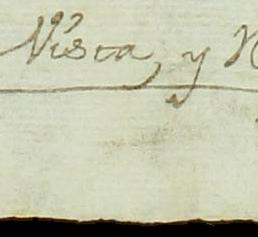 Visca, y